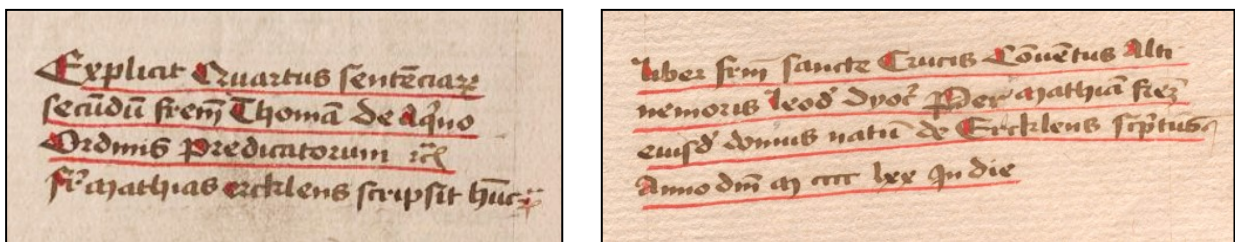 Explicit Quartus sentēciaꝝ
secūdū frem̄ Thomā de Aq͛no
Ordinis Predicatorum
fr͛ Mathias ercklens scripsit hūc
liber frm̄ sancte Crucis Cōuētus Alti
nemoris leod̓ dyoc̄ Per Mathiā frēꝫ
eiusd̓ domus natū de Ercklens scp̄tus
Anno dm̄ M cccc lxx In die